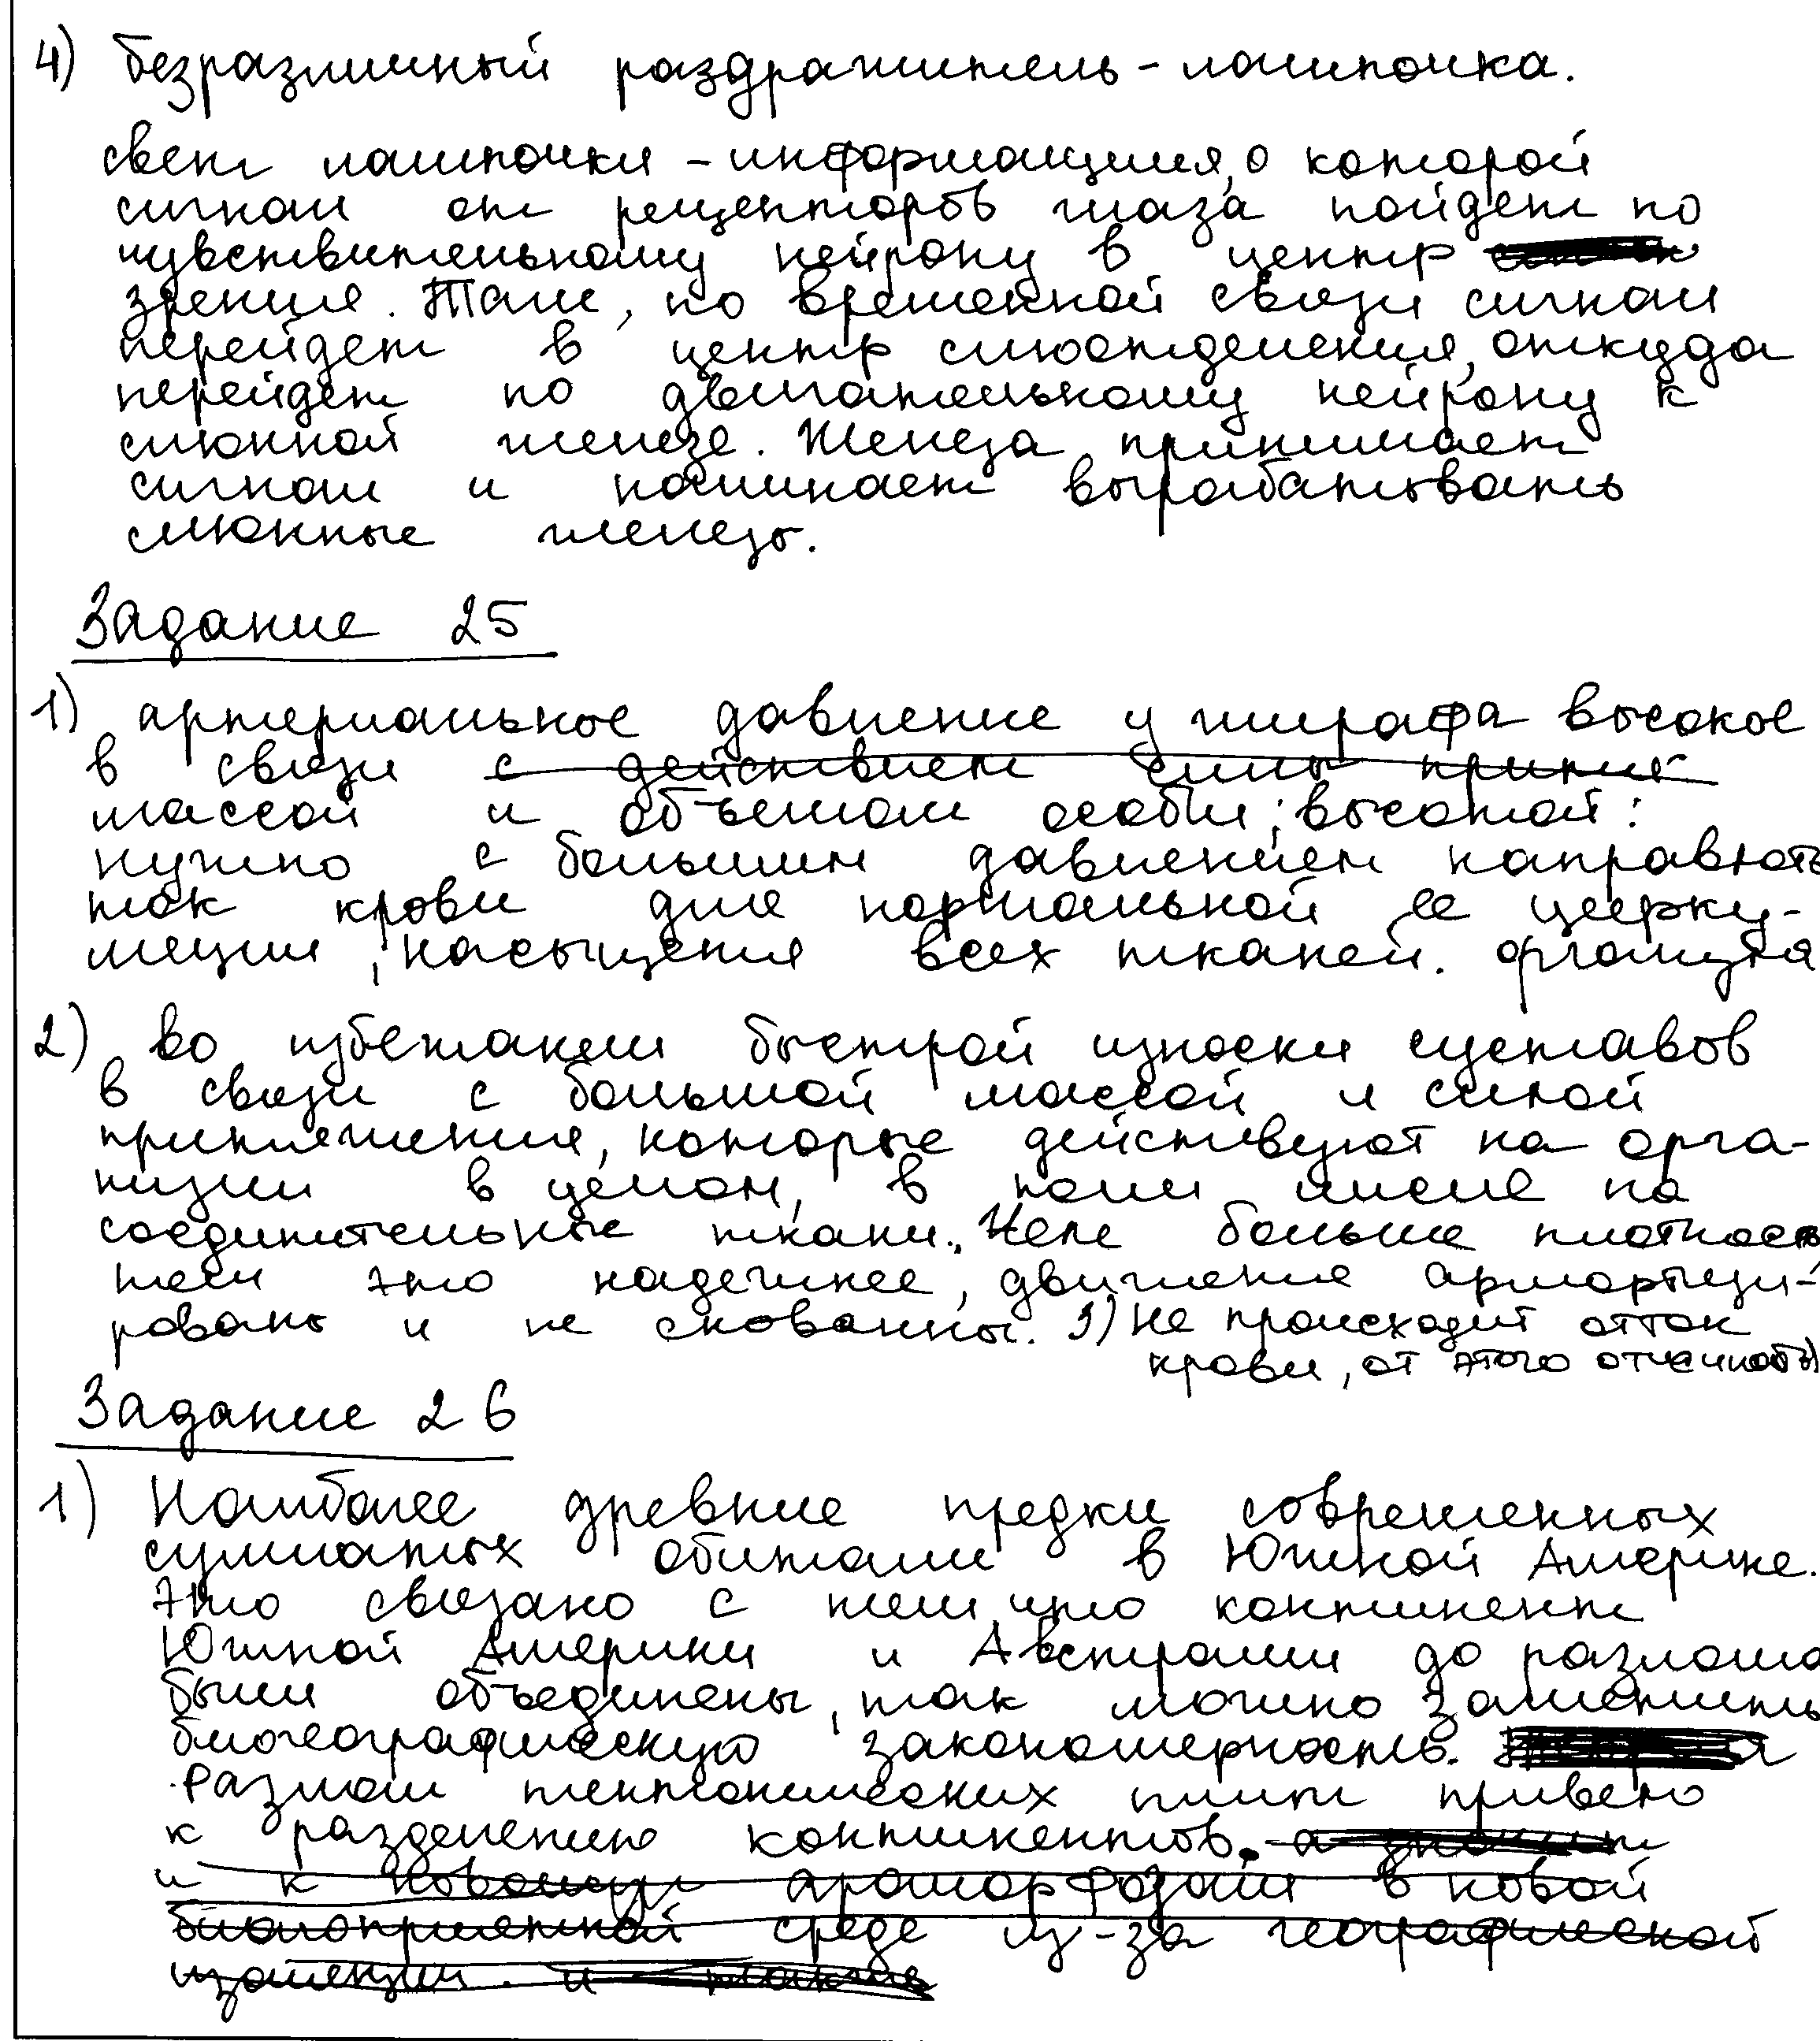 4) безразличный раздражитель - лампочка.
свет лампочки - информация, о которой
сигнал от рецепторов глаза пойдет по
чувствительному нейрону в центр
зрения. Там, по временной связи сигнал
перейдет в центр слюотделения, откуда
перейдет по двигательному нейрону к
слюнной железе. Железа принимает
сигнал и начинает вырабатывать
слюнные железы.
Задание 25
1) артериальное давление у жирафа высокое
в связи с действием силы притяж
массой и объемом особи; высотой:
нужно с большим давлением направлять
ток крови для нормальной ее цирку-
ляции, насыщения всех тканей.
2) во избежании быстрой износки суставов
в связи с большой массой и силой
притяжения, которые действуют на орга-
низм в целом, в том числе на
соединительные ткани. Чем больше плотность
тем это надежнее, движение амортизи-
рованы и не скованны. 3) Не происходит отток
крови, от этого
Задание 26
1) Наиболее древние предки современных
сумчатых обитали в Южной Америке.
Это связано с тем, что континент
Южной Америки и Австралии до разлома
были объединены, так можно заметить
биогеографическую закономерность.
Разлом тектонических плит привело
к разделению континентов. а значит
и к новому ароморфозам в новой
благоприятной среде из-за географической
изоляции. и также